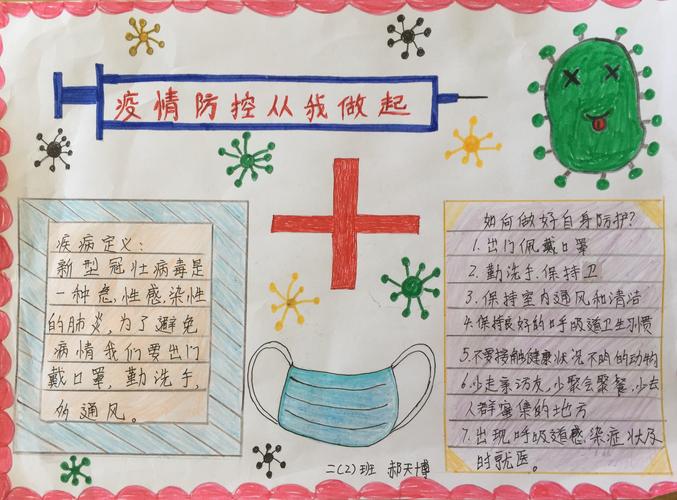 疫情防控从我做起
疾病定义:
新型冠壮病毒是
一种急,性感染性
的肺炎,为了避免
病情我们要出门
戴口罩,勤洗手,
多通风。
如何做好自身防护?
1.出门佩戴口罩
2.勤洗手.保持卫
3.保持室内通风和清洁
4.保持良好的呼吸道卫生习惯
5.不要接触健康状况不明的动物
6.少走亲访友,少聚会聚餐,少去
人群密集的地方
7.出现呼吸道感染症状及
时就医。
二(2)班 郝天博